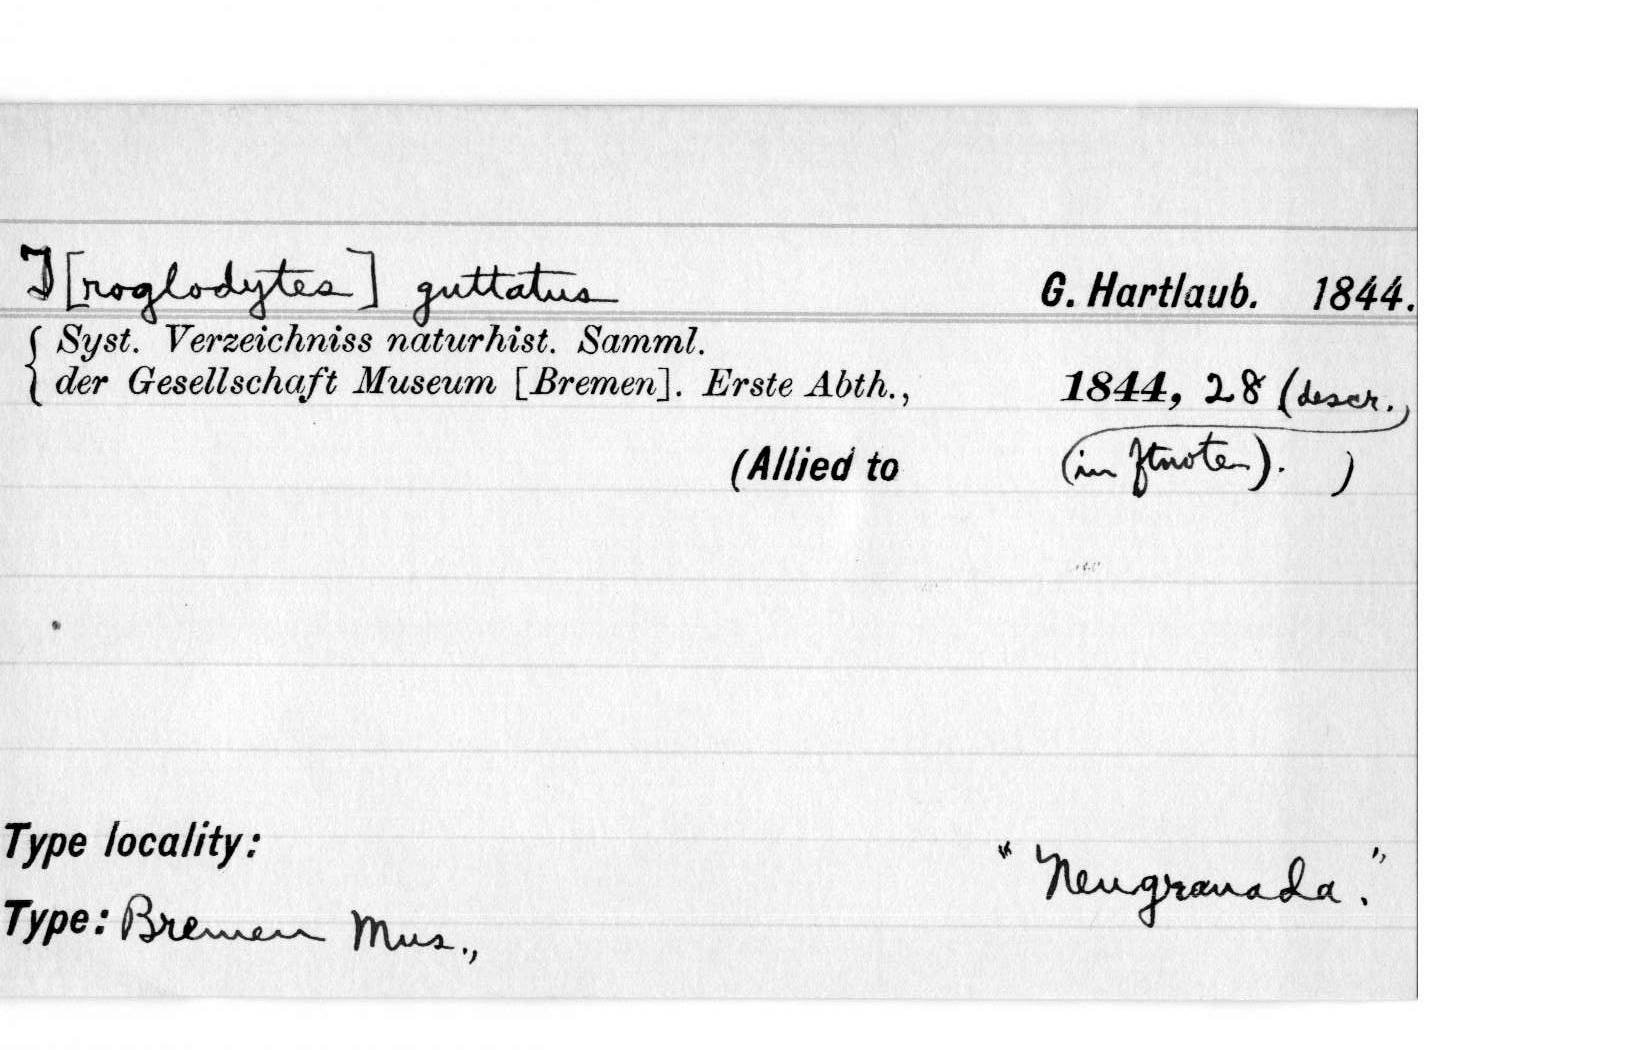 T[roglodytes] guttatus G. Hartlaub. 1844.
Syst. Verzeichniss naturhist. Samml.
der Gesellschaft Museum [Bremen]. Erste Abth., 1844, 28 (descr.,
(Allied to (in ftnote). )
Type locality: "Neugranada."
Type: Bremen Mus.,